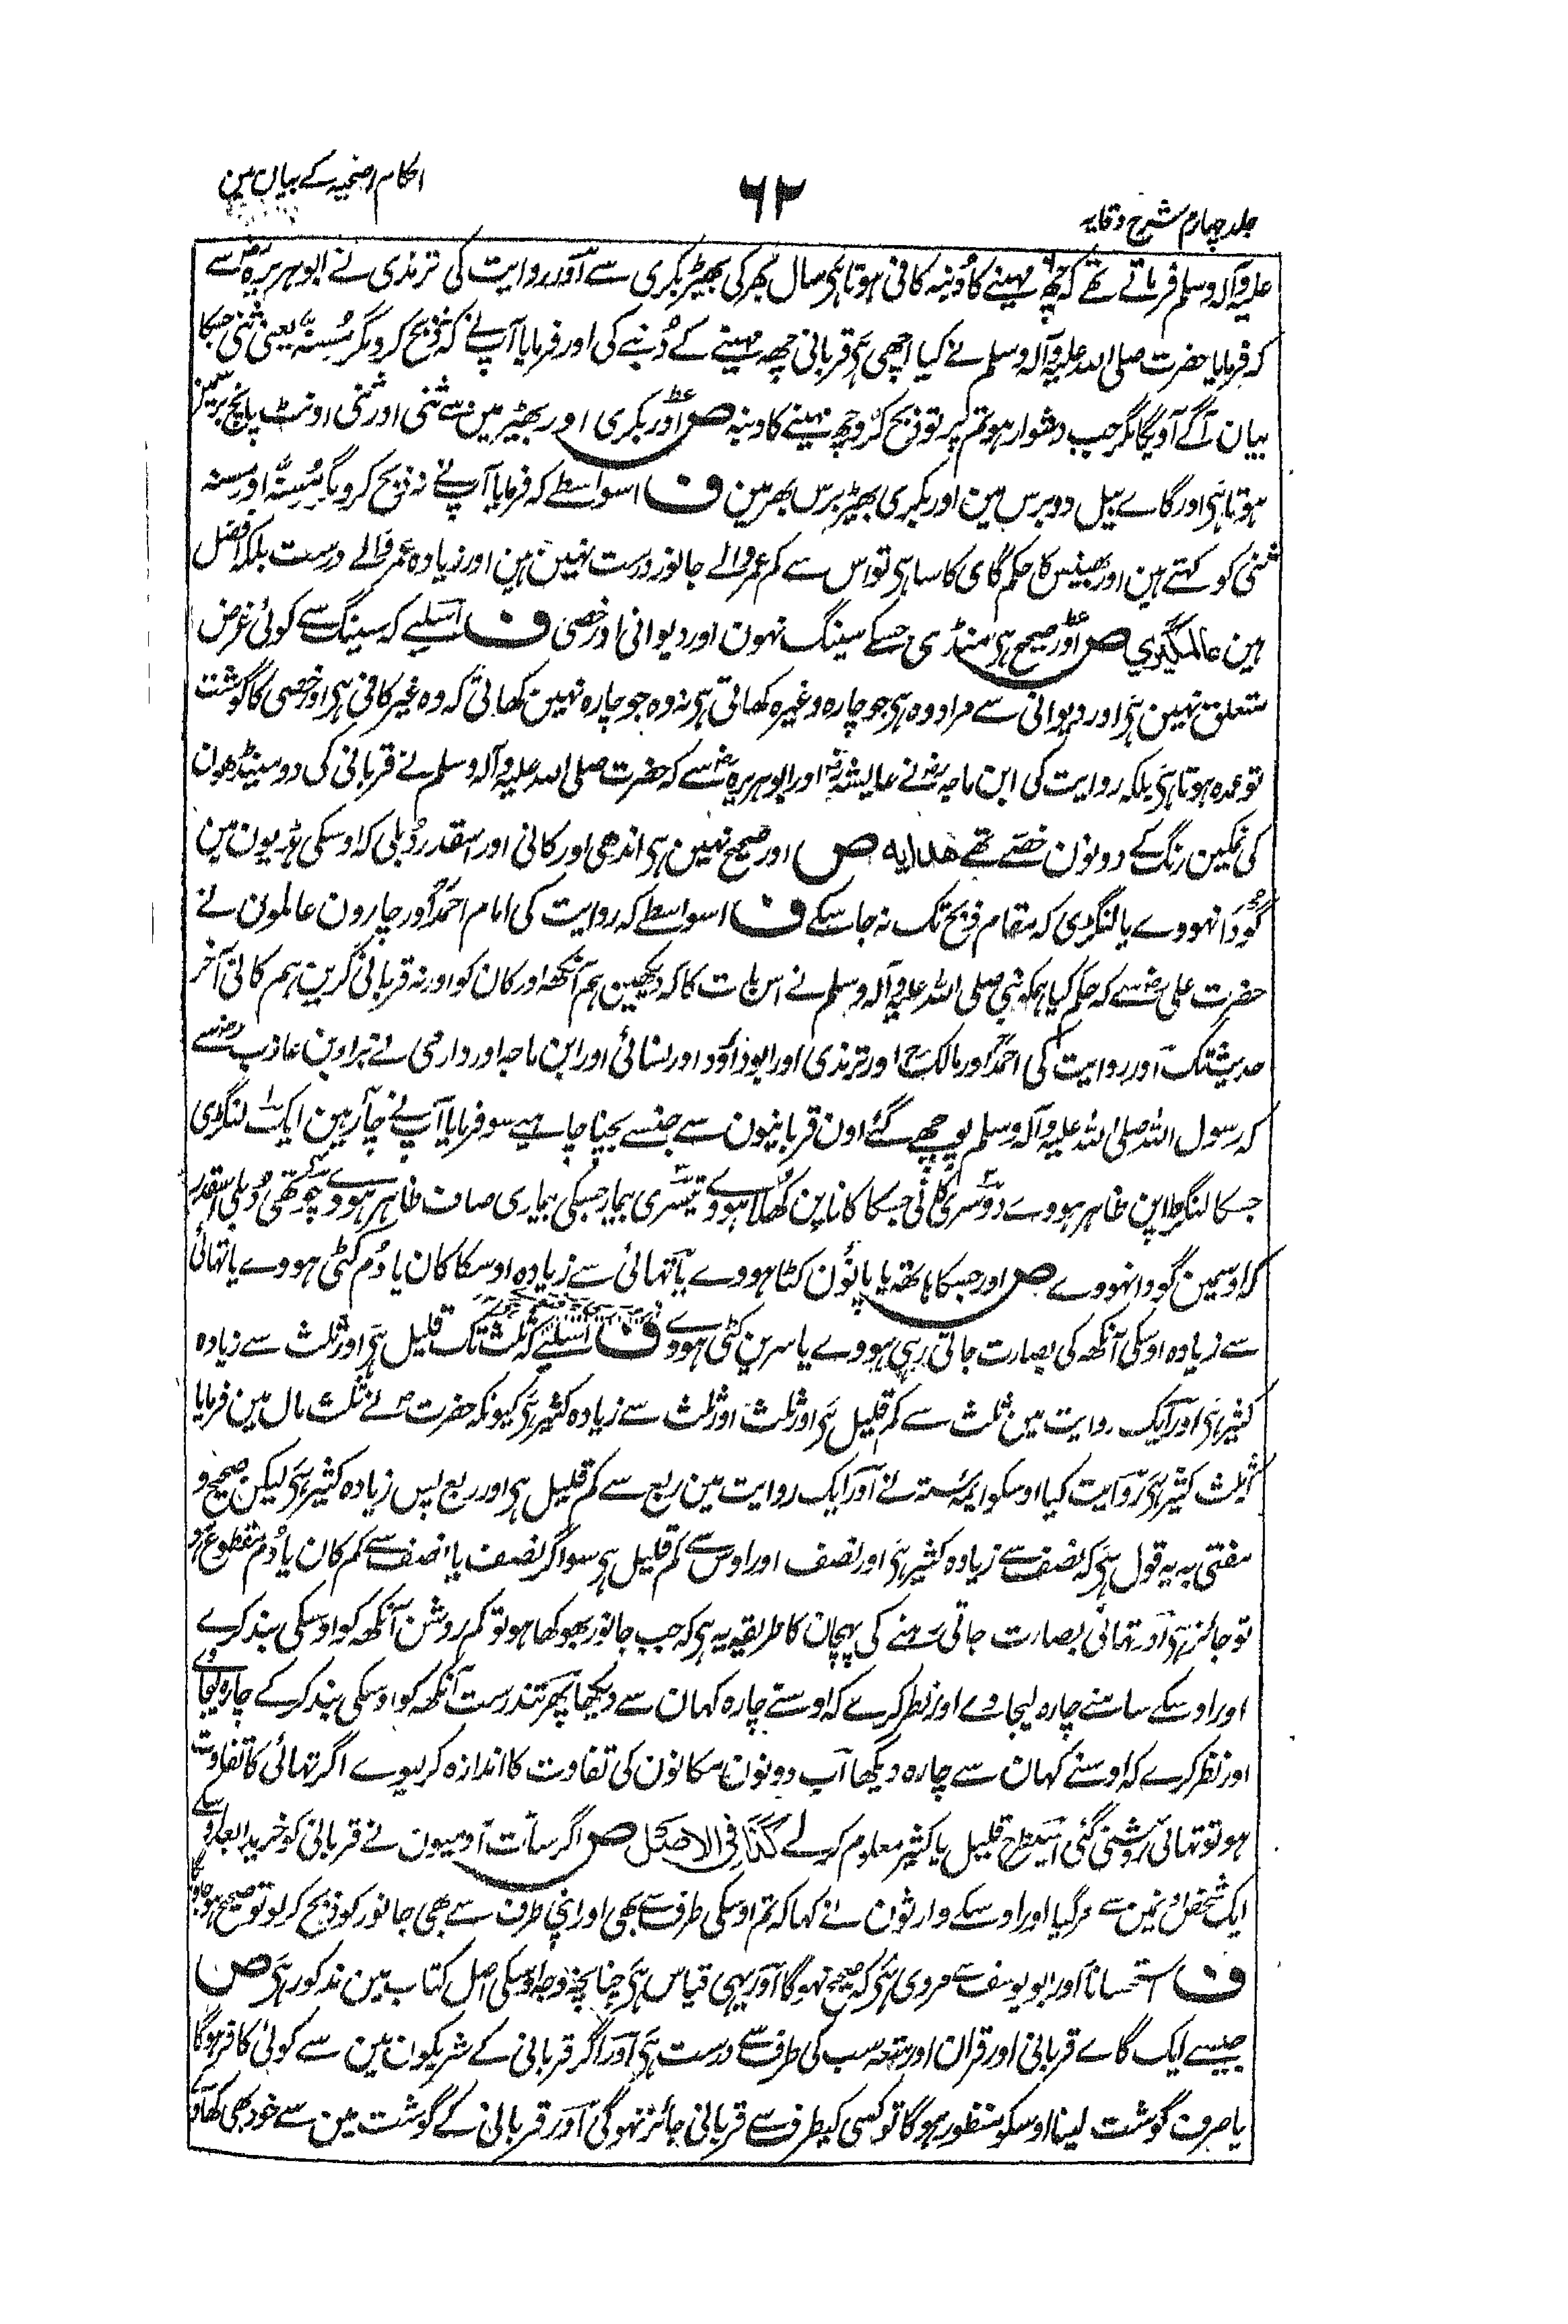 احکام اضحیہ کے بیان مین
۶۲
جلد چہارم شرح وقایہ
علیہ وآلہ وسلم فرماتے تھے کہ چھ مہینے کا دُنبہ کافی ہوتا ہی سال بھر کی بھیڑ بکری سے اور روایت کی ترمذی نے ابوہریرہ رض سے
کہ فرمایا حضرت صلی اللہ علیہ وآلہ وسلم نے کیا اچھی ہی قربانی چھہ مہینے کے دُنبے کی اور فرمایا آپ نے کہ نہ ذبح کرو مگر مُسِنہ یعنی ثنی جسکا
بیان آگے آویگا مگر جب دشوار ہو تم پر تو ذبح کرو چھ مہینے کا دنبہ ص اور بکری اور بھیڑ مین سے ثنی اور ثنی اونٹ پانچ برسمین
ہوتا ہی اور گاے بیل دو برس مین اور بکری بھیڑ برس بھر مین ف اسواسطے کہ فرمایا آپ نے نہ ذبح کرو مگر مُسِنہ اور مسنہ
ثنی کو کہتے ہین اور بھینس کا حکم گای کا سا ہی تو اس سے کم عمر والے جانور درست نہین ہین اور زیادہ عمر والے درست بلکہ افضل
ہین عالمگیری ص اور صحیح ہی منڈی جسکے سینگ نہون اور دیوانی اور خصی ف اسلیے کہ سینگ سے کوئی غرض
متعلق نہین ہی اور دیوانی سے مراد وہ ہی جو چارہ وغیرہ کھاتی ہی نہ وہ جو چارہ نہین کھاتی کہ وہ غیر کافی ہی اور خصی کا گوشت
تو عمدہ ہوتا ہی بلکہ روایت کی ابن ماجہ نے عایشہ رض اور ابوہریرہ رض سے کہ حضرت صلی اللہ علیہ وآلہ وسلم نے قربانی کی دو مینڈھون
کی نمکین رنگ کے دونون خصے تھے ھدایہ ص اور صحیح نہین ہی اندھی اور کانی اور اسقدر دُبلی کہ اوسکی ہڈیون مین
گودا نہووے یا لنگڑی کہ مقام ذبح تک نہ جا سکے ف اسواسطے کہ روایت کی امام احمد اور چارون عالمون نے
حضرت علی رض سے کہ حکم کیا ہمکو نبی صلی اللہ علیہ وآلہ وسلم نے اس بات کا کہ دیکھین ہم آنکھہ اور کان کو اور نہ قربانی کرین ہم کانی آخر
حدیث تک اور روایت کی احمد اور مالک اور ترمذی اور ابوداؤد اور نسائی اور ابن ماجہ اور دارمی نے براء بن عازب رض سے
کہ رسول اللہ صلی اللہ علیہ وآلہ وسلم پوچھے گئے اون قربانیون سے جنسے بچنا چاہیے سو فرمایا آپ نے چار ہین ایک لنگڑی
جسکا لنگڑاپن ظاہر ہووے دوسری کانی جسکا کاناپن کھلا ہووے تیسری بیمار جسکی بیماری صاف ظاہر ہووے چوتھی دُبلی اسقدر
کہ اوسمین گودا نہووے ص اور جسکا ہاتھہ یا پانؤن کٹا ہووے یا تہائی سے زیادہ اوسکا کان یا دُم کٹی ہووے یا تہائی
سے زیادہ اوسکی آنکھہ کی بصارت جاتی رہی ہووے یا سرین کٹی ہووے ف اسلیے کہ ثلث تک قلیل ہی اور ثلث سے زیادہ
کثیر ہی اور ایک روایت مین ثلث سے کم قلیل ہی اور ثلث اور ثلث سے زیادہ کثیر ہی کیونکہ حضرت ص نے ثلث مال مین فرمایا
ثلث کثیر ہی روایت کیا اوسکو ایمہ ستہ نے اور ایک روایت مین ربع سے کم قلیل ہی اور ربع پس زیادہ کثیر ہی لیکن صحیح و
مفتی بہ یہ قول ہی کہ نصف سے زیادہ کثیر ہی اور نصف اور اوس سے کم قلیل ہی سو اگر نصف یا نصف سے کم کان یا دُم مقطوع ہو
تو جائز ہی اور تہائی بصارت جاتی رہنے کی پہچان کا طریقہ یہ ہی کہ جب جانور بھوکھا ہو تو کم روشن آنکھہ کو اوسکی بند کرے
اور اوسکے سامنے چارہ لیجاوے اور نظر کرے کہ اوسنے چارہ کہان سے دیکھا پھر تندرست آنکھہ کو اوسکی بند کرکے چارہ لیجاوے
اور نظر کرے کہ اوسنے کہان سے چارہ دیکھا اب دونون مکانون کی تفاوت کا اندازہ کر لیوے اگر تہائی کا تفاوت
ہو تو تہائی روشنی گئی اسیطرح قلیل یا کثیر معلوم کر لے کذا فی الاصل ص اگر سات آدمیون نے قربانی کو خریدا بعد اوسکے
ایک شخص اونمین سے مر گیا اور اوسکے وارثون نے کہا کہ تم اوسکی طرف سے بھی اور اپنی طرف سے بھی جانور کو ذبح کر لو تو صحیح ہو جاویگا
ف استحساناً اور ابو یوسف سے مروی ہی کہ صحیح نہوگا اور یہی قیاس ہی چنانچہ وجہ اوسکی اصل کتاب مین مذکور ہی ص
جیسے ایک گاے قربانی اور قران اور متعہ سب کی طرف سے درست ہی اور اگر قربانی کے شریکون مین سے کوئی کافر ہوگا
یا صرف گوشت لینا اوسکو منظور ہوگا تو کسی کیطرف سے قربانی جائز نہوگی اور قربانی کے گوشت مین سے خود بھی کھاوے